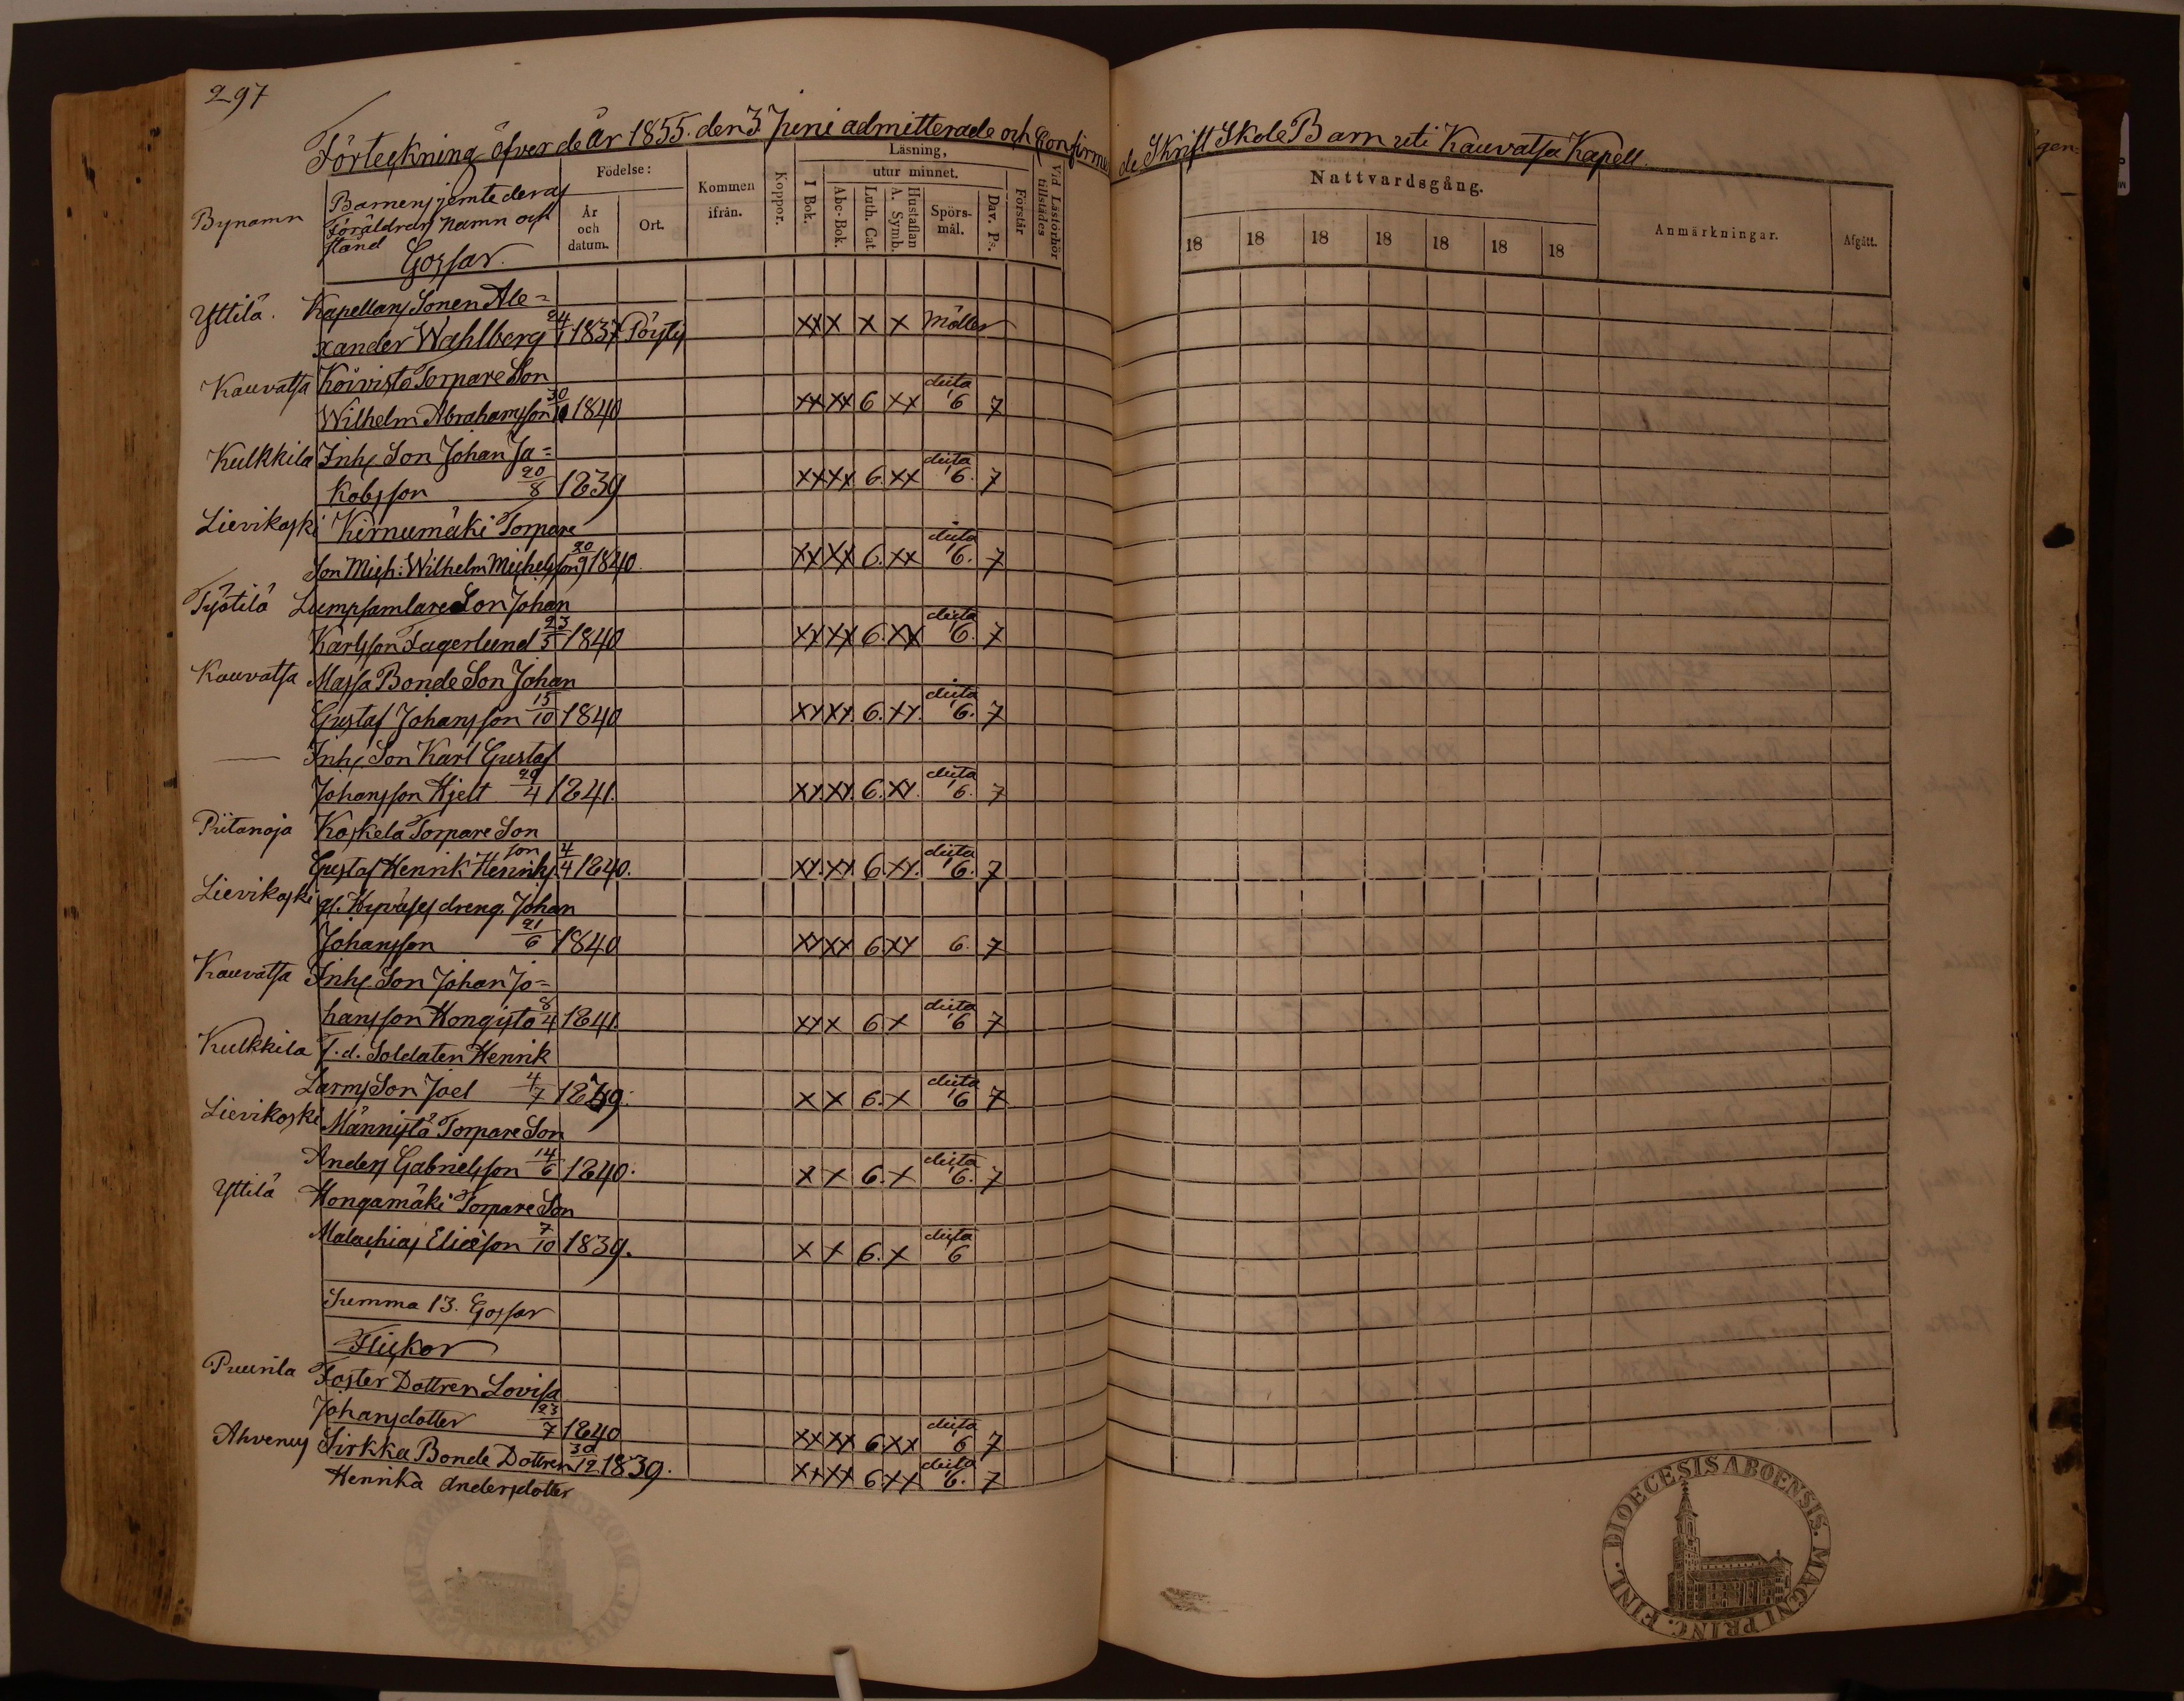 297
Förteckning öfver de År 1855. den 3 Juni admitterade och Confirme
de Skrift Skole Barn uti Kauvatsa Kapell.
Bynamn
Barnens jemte deras
Föräldrars Namn och
stånd
Gossar.
Födelse:
År
och
datum.
Ort.
Kommen
ifrån.
Koppor.
Läsning,
I Bok.
utur minnet.
Abc-Bok.
Luth. Cat.
A. Symb.
Hustaflan
Spörs-
mål.
Dav. Ps.
Förstår
Vid Läsförhör
tillstädes
Nattvardsgång.
18 18 18 18 18 18 18
Anmärkningar.
Afgått.
Yttilä. Kapellans Sonen Ale=
xander Wahlberg 24/1 1837 Pöyty xx x x x Möller
Kauvatsa Koivisto Torpare Son
Wilhelm Abrahamsson 30/10 1840 xx xx 6 xx duta 6 7
Kulkkila Inhs Son Johan Ja=
kobsson 20/8 1839 xx xx 6. xx duta 6. 7
Lievikoski Kirnumäki Torpare
Son Mich: Wilhelm Michelsson 20/9 1840. xx xx 6. xx duta 6. 7
Työtilä Lumpsamlare Son Johan
Karlsson Fagerlund 23/5 1840 xx xx 6. xx duta 6. 7
Kauvatsa Massa Bonde Son Johan
Gustaf Johansson 15/10 1840 xx xx. 6. xx. duta 6. 7
— Inhs Son Karl Gustaf
Johansson Hjelt 29/4 1841. xx. xx. 6. xx. duta 6. 7
Piitanoja Koskela Torpare Son
Gustaf Henrik Henriks son 4/4 1840. xx. xx. 6. xx. duta 6. 7
Lievikoski gl. Hyväses dreng Johan
Johansson 21/6 1840 xx xx 6 xx 6. 7
Kauvatsa Inhs Son Johan Jo=
hansson Hongisto 8/4 1841. xx x 6 x duta 6 7
Kulkkila f. d. Soldaten Henrik
Larms Son Joel 4/7 1839. x x 6. x duta 6 7
Lievikoski Männistä Torpare Son
Anders Gabrielsson 14/6 1840. x x 6. x duta 6. 7
Yttilä Hongamäki Torpare Son
Malachias Eliæson 7/10 1839. x x 6. x duta 6
Summa 13. Gossar
Flickor
Puurila Foster Dottren Lovisa
Johansdotter 23/7 1840 xx xx 6 xx duta 6 7
Ahvenus Sirkka Bonde Dottren 30/12 1839. xx xx 6 xx duta 6. 7
Henrika Andersdotter
DIOECESIS ABOENSIS. MAGNI PRINC. FINL.